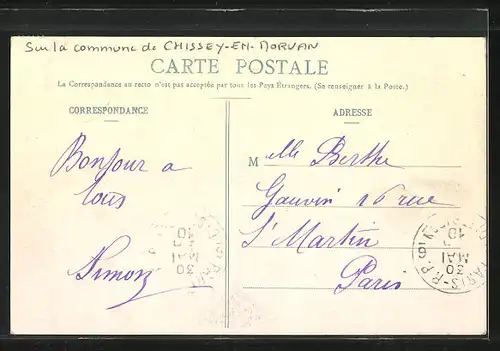 Sur la commune de CHISSEY-EN-MORVAN
CARTE POSTALE
La Correspondance au recto n'est pas acceptée par tous les Pays Étrangers. (Se renseigner à la Poste.)
CORRESPONDANCE
ADRESSE
Bonjour a
tous
Simon
Melle Berthe
Gauvin 16 rue
St Martin
Paris
PARIS
30
MAI
10
30
MAI
10